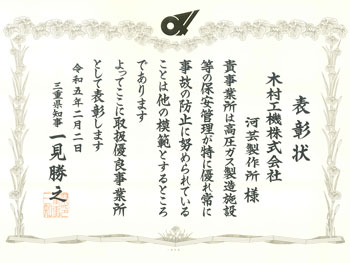 表彰状
木村工機株式会社
河芸製作所 様
貴事業所は高圧ガス製造施設
等の保安管理が特に優れ常に
事故の防止に努められている
ことは他の模範とするところ
であります
よってここに取扱優良事業所
として表彰します
令和五年二月二日
三重県知事 一見勝之